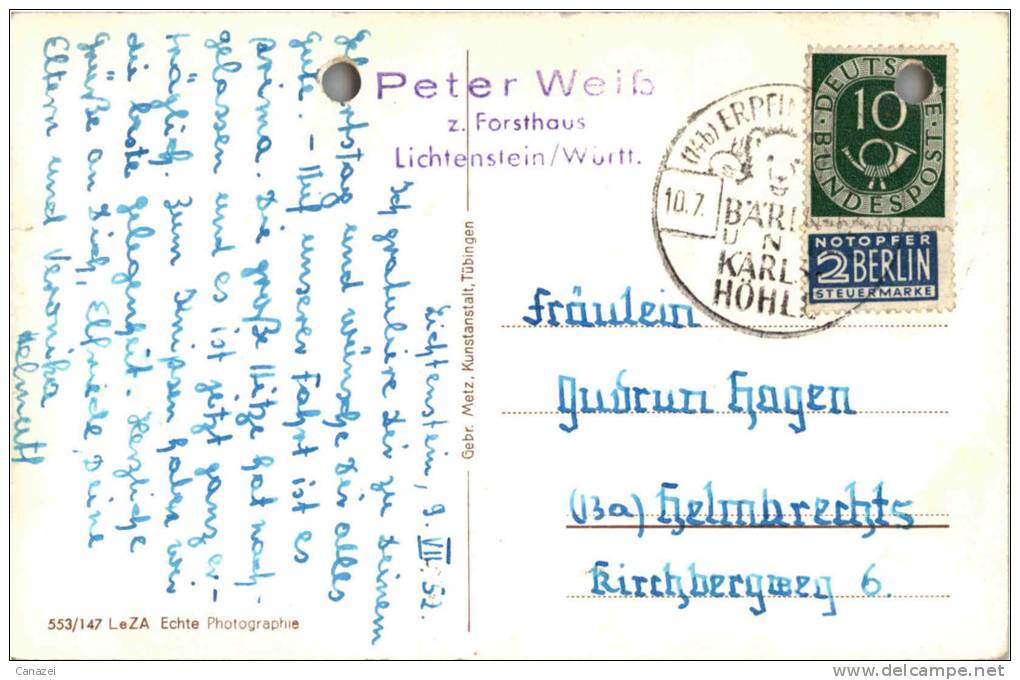 Lichtenstein, 9. VII. 52.
Ich gratuliere Dir zu Deinem
Geburtstag und wünsche Dir alles
Gute. - Auf unserer Fahrt ist es
prima. Die große Hitze hat nach-
gelassen und es ist jetzt ganz er-
träglich. Zum Knipsen haben wir
die beste Gelegenheit. Herzliche
Grüße an Dich, Elfriede, Deine
Eltern und Veronika
Helmut
553/147 LeZA Echte Photographie
Gebr. Metz, Kunstanstalt, Tübingen
Peter Weiß
z. Forsthaus
Lichtenstein/Württ.
(14b) ERPFIN
10.7.
BÄR
UN
KARLS
HÖHLE
DEUTSCHE
BUNDESPOST
10
NOTOPFER
2 BERLIN
STEUERMARKE
Fräulein
Gudrun Hagen
(13a) Helmbrechts
Kirchbergweg 6.
Canazei
delcampe.net